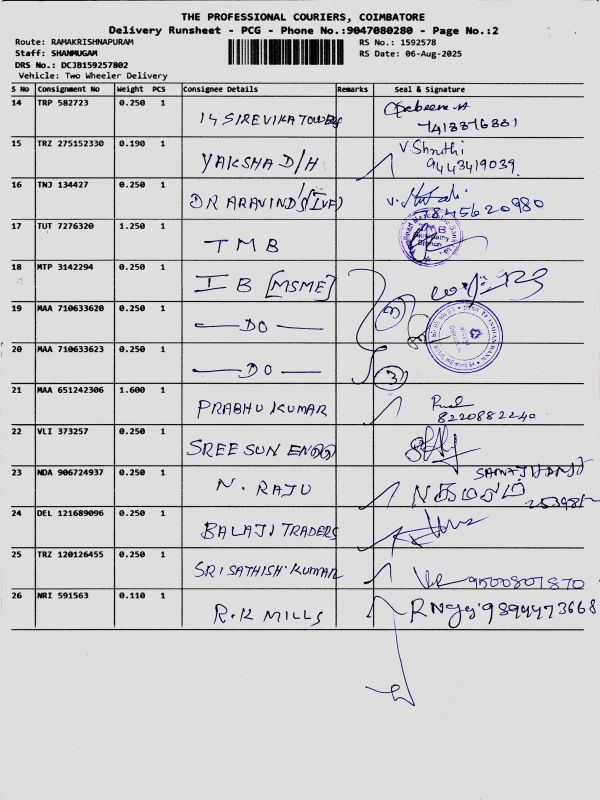 THE PROFESSIONAL COURIERS, COIMBATORE
Delivery Runsheet - PCG - Phone No.:9047080280 - Page No.:2
Route: RAMAKRISHNAPURAM
Staff: SHANMUGAM
DRS No.: DCJB159257802
Vehicle: Two Wheeler Delivery
RS No.: 1592578
RS Date: 06-Aug-2025
S No Consignment No Weight PCS Consignee Details Remarks Seal & Signature
14 TRP 582723 0.250 1 14 SIREVIKA
15 TRZ 275152330 0.190 1 YAKSHA D/H V. Shruthi
9443419039
16 TNJ 134427 0.250 1 DR ARAVIND'S (IVF) V.
7845620980
17 TUT 7276320 1.250 1 TMB
18 MTP 3142294 0.250 1 IB [MSME]
19 MAA 710633620 0.250 1 DO
20 MAA 710633623 0.250 1 DO 3
21 MAA 651242306 1.600 1 PRABHU KUMAR
8220882240
22 VLI 373257 0.250 1 SREE SUN ENGG
23 NDA 906724937 0.250 1 N. RAJU
24 DEL 121689096 0.250 1 BALAJI TRADERS
25 TRZ 120126455 0.250 1 SRI SATHISH KUMAR 9500801870
26 NRI 591563 0.110 1 R.K MILLS 9894473668